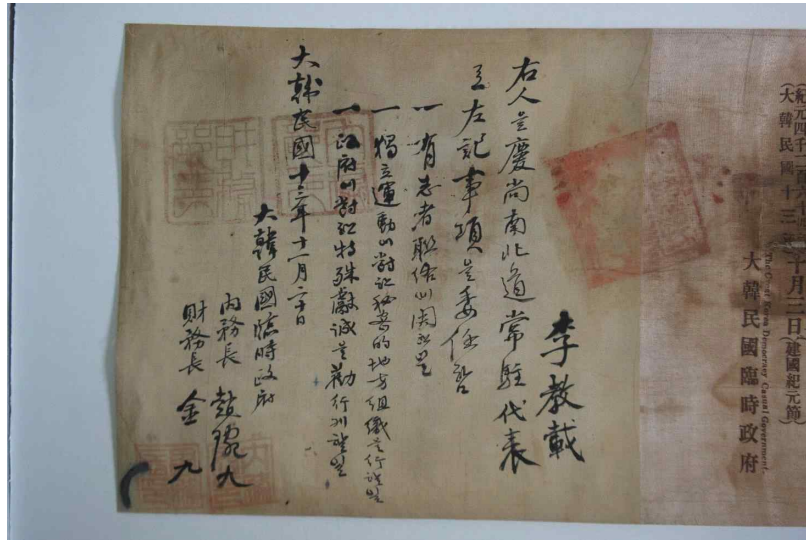 (紀元四千
(大韓民國十三年十月三日(建國紀元節)
The Great Korea Democracy Casual Government.
大韓民國臨時政府
李敎載
右人을慶尙南北道常駐代表
로左記事項을委任함
一 有志者聯絡에関한일
一 獨立運動에對한秘密的地方組織을行할일
一 政府에對한特殊獻誠을勸行케할일
大韓民國十三年十一月二十日
大韓民國臨時政府
內務長 趙琬九
財務長 金 九